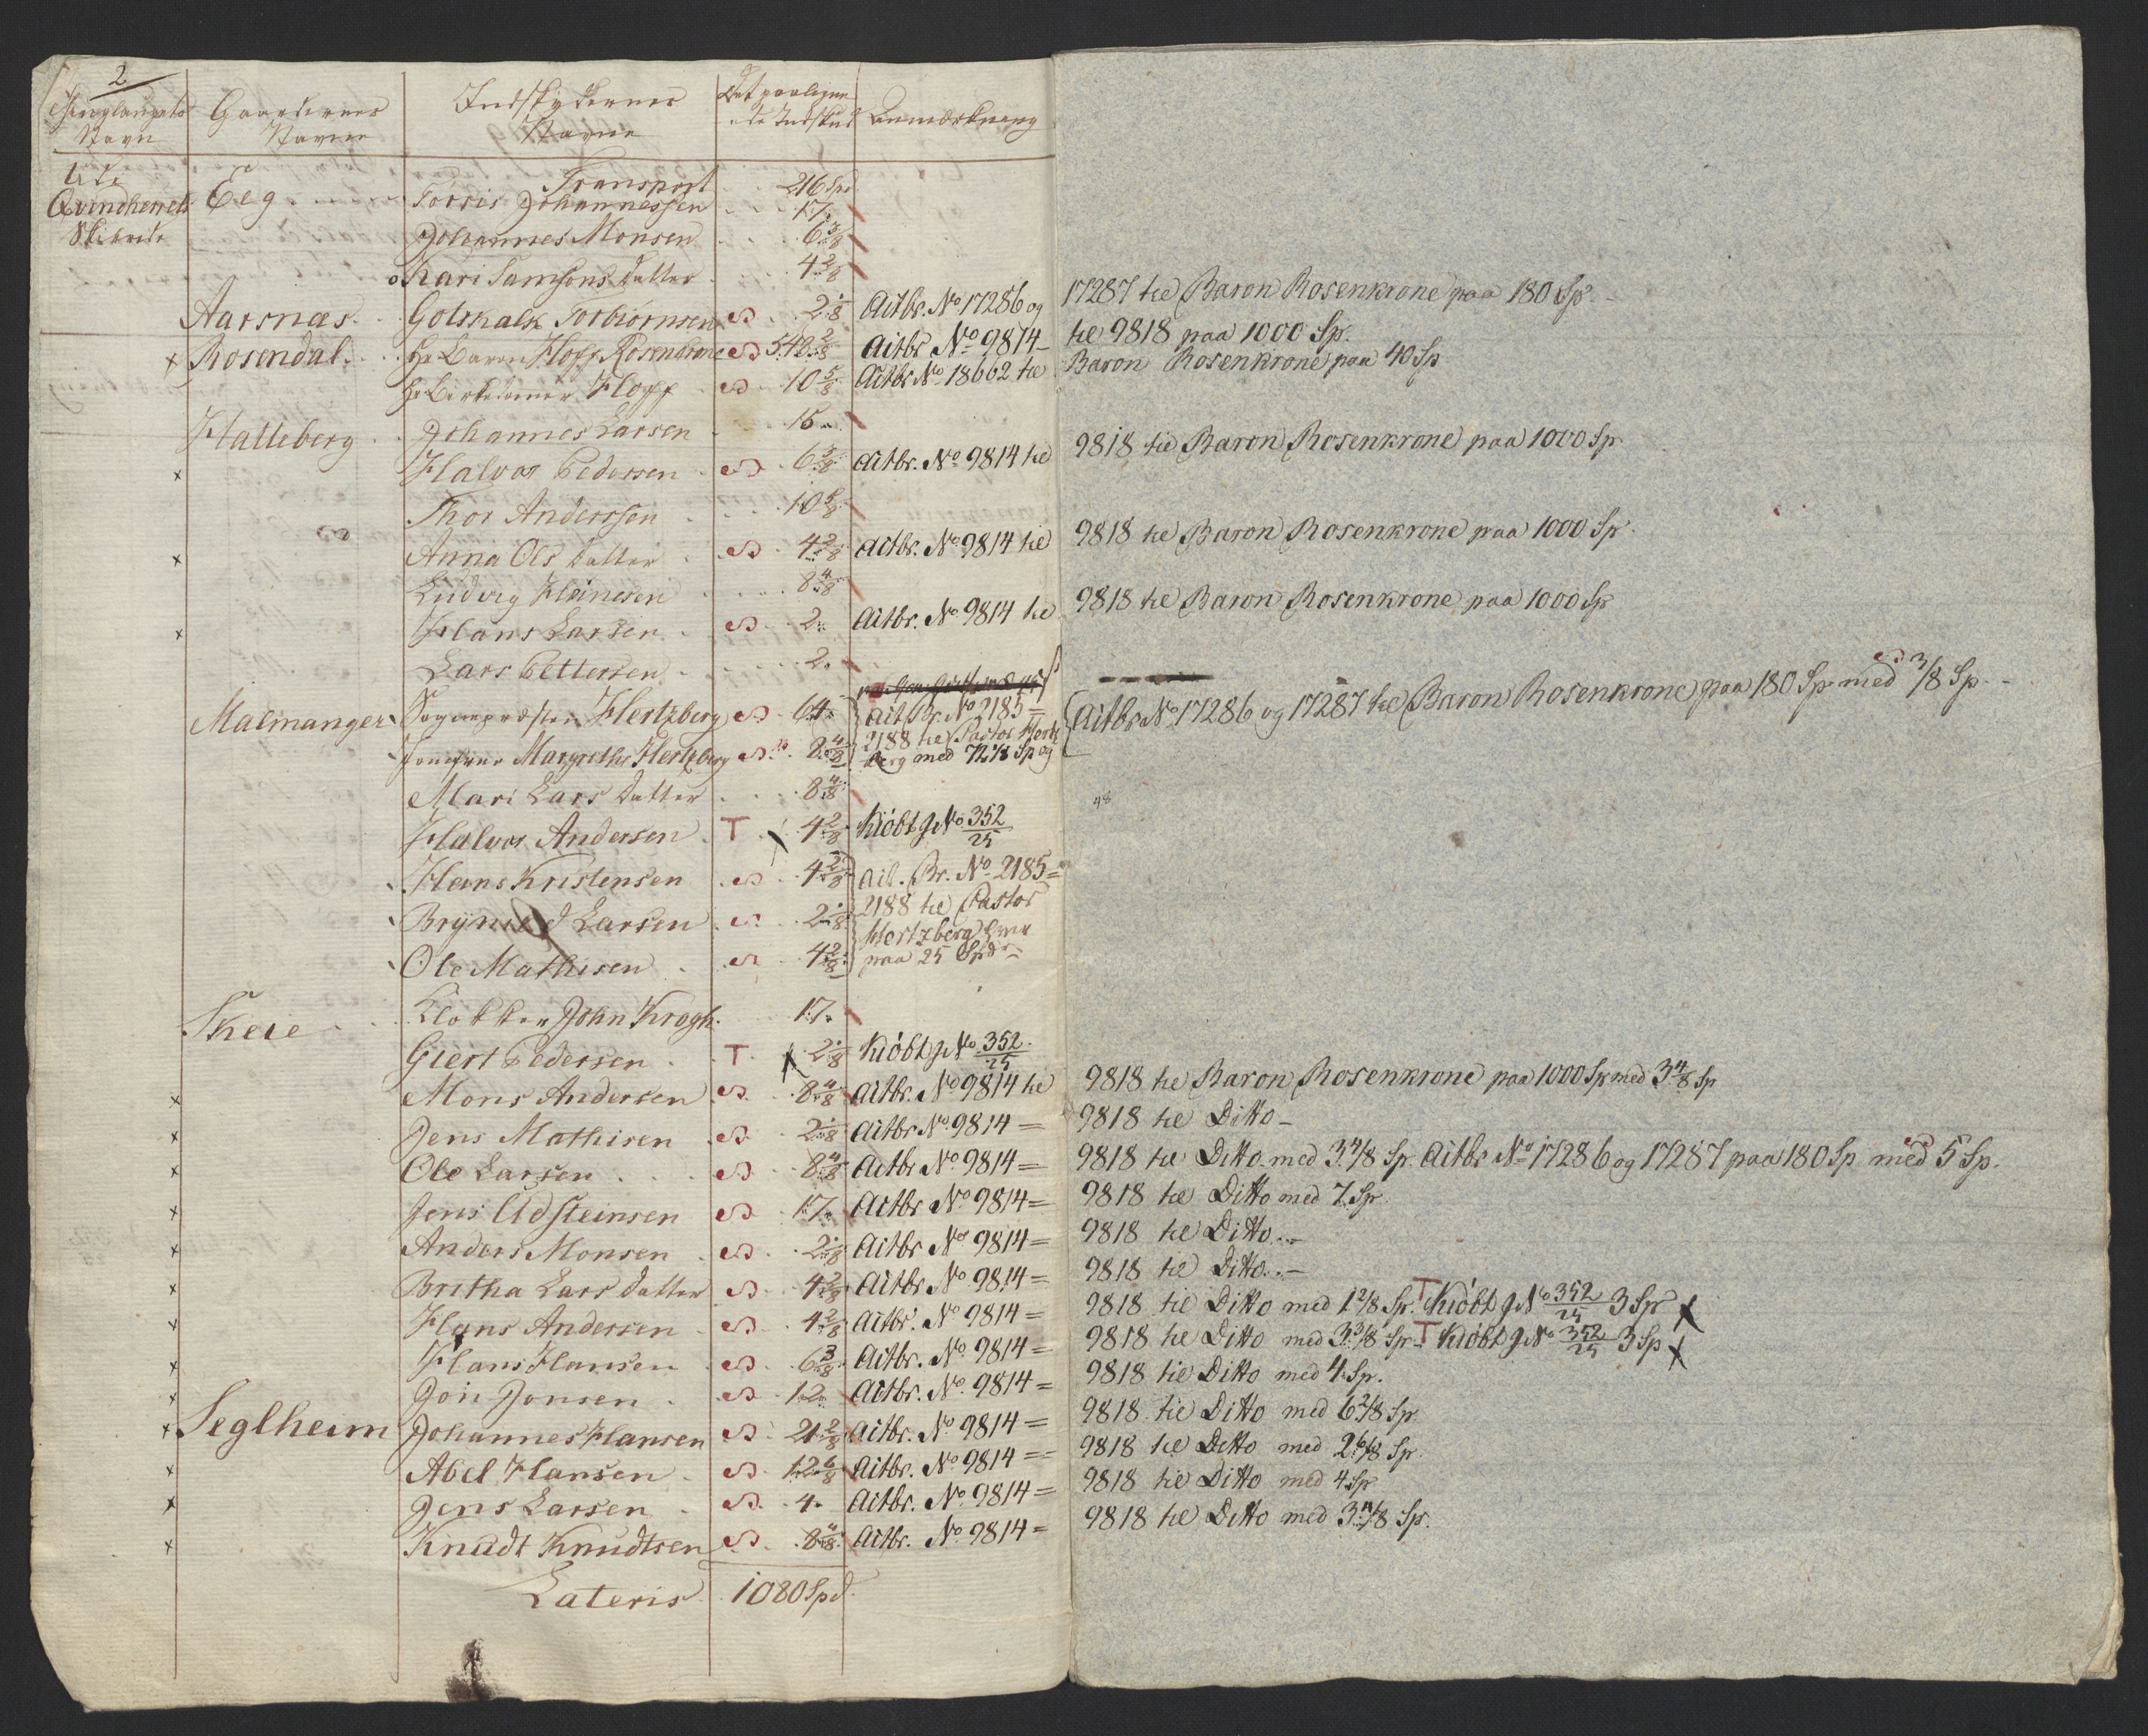 2
Thinglaugets Navn | Gaardernes Navne | Indskydernes Navne | Det paalignede Indskud | Anmærkning
Transport 216 Spd
Qvindherreds Skibrede Eeg Torris Johannessen 17.
Johannes Monsen 6 3/8
o Kari Samsons datter 4 2/8
Aarsnæs Gotskalk Torbiörnsen 2 1/8 Aitbr. No 17286 og 17287 til Baron Rosenkrone paa 180 Sp.
x Rosendal Hr Baron Hoff Rosenkrone 540 2/8 Aitbr No 9814 til 9818 paa 1000 Sp.
Hoff 10 5/8 Aitbr No 18662 til Baron Rosenkrone paa 40 Sp
Hatteberg Johannes Larsen 15
x Halvor Pedersen 6 3/8 Aitbr. No 9814 til 9818 til Baron Rosenkrone paa 1000 Sp
Thor Anderssen 10 5/8
x Anna Ols datter 4 2/8 Aitbr. No 9814 til 9818 til Baron Rosenkrone paa 1000 Sp.
Ludvig Heinesen 8 4/8
x Hans Larsen 2 Aitbr. No 9814 til 9818 til Baron Rosenkrone paa 1000 Sp
Lars Pettersen 2
Malmanger Sognepræsten Hertzberg 64 Ait Br. No 2185=
Jomfrue Margrethe Hertzberg 8 4/8 2188 til Pastor Hertzberg med 72 1/8 Sp og Aitbr No 17286 og 17287 til Baron Rosenkrone paa 180 Sp med 3/8 Sp.
Mari Lars datter 8 4/8
48
Halvor Andersen T 4 2/8 Kiöbt g No 352/25
Hans Kristensen 4 2/8 Ait. Br. No 2185=
Brynild Larsen 2 1/8 2188 til Pastor Hertzberg
Ole Mathisen 4 2/8 paa 25 Spdr
Skeie Klokker John Krogh 17.
Giert Pedersen T 2 1/8 Kiöbt g No 352/25
x Mons Andersen 8 4/8 Aitbr. No 9814 til 9818 til Baron Rosenkrone paa 1000 Sp med 3 4/8 Sp
x Jens Mathisen 2 1/8 Aitbr No 9814 = 9818 til Ditto
x Ole Larsen 8 4/8 Aitbr No 9814 = 9818 til Ditto med 3 4/8 Sp. Aitbr No 17286 og 17287 paa 180 Sp med 5 Sp.
x Jens Adsteinsen 17. Aitbr No 9814 = 9818 til Ditto med 7 Sp
x Anders Monsen 2 1/8 Aitbr No 9814 = 9818 til Ditto
x Britha Lars datter 4 2/8 Aitbr No 9814 = 9818 til Ditto
x Hans Andersen 4 2/8 Aitbr. No 9814 = 9818 til Ditto med 1 2/8 Sp. T Kiöbt g No 352/25 3 Sp x
x Hans Hansen 6 3/8 Aitbr. No 9814 = 9818 til Ditto med 3 3/8 Sp T Kiöbt g No 352/25 3 Sp x
x Jon Jonsen 12 Aitbr. No 9814 = 9818 til Ditto med 4 Sp.
x Seglheim Johannes Hansen 21 2/8 Aitbr. No 9814 = 9818 til Ditto med 6 2/8 Sp
x Abel Hansen 12 6/8 Aitbr. No 9814 = 9818 til Ditto med 2 6/8 Sp.
x Jens Larsen 4 Aitbr. No 9814 = 9818 til Ditto med 4 Sp
x Knudt Knudtsen 8 4/8 Aitbr. No 9814 = 9818 til Ditto med 3 4/8 Sp.
Lateris 1080 Spd.